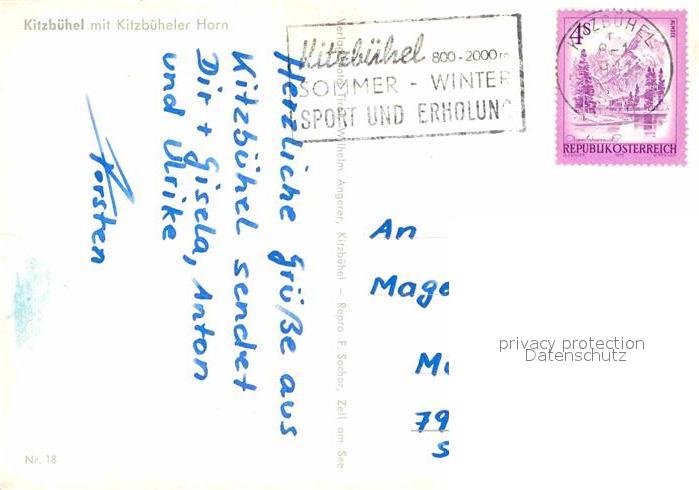 Kitzbühel mit Kitzbüheler Horn
Herzliche Grüße aus
Kitzbühel sendet
Dir + Gisela, Anton
und Ulrike
Torsten
Nr. 18
Wilhelm Angerer, Kitzbühel – Repro F. Sochor, Zell am See
Kitzbühel 800-2000m
SOMMER - WINTER
SPORT UND ERHOLUNG
KITZBÜHEL
4S
REPUBLIK ÖSTERREICH
An
Mage
Mu
79
S
privacy protection
Datenschutz